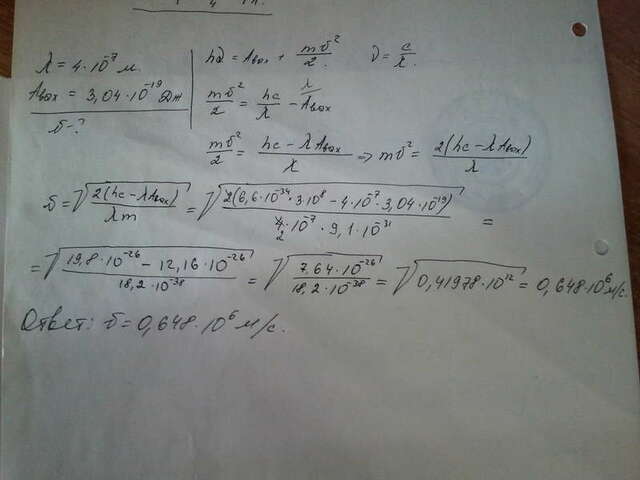 λ = 4·10⁻⁷ м.
Aвых = 3,04·10⁻¹⁹ Дж
υ - ?
hν = Aвых + mυ²/2. ν = c/λ.
mυ²/2 = hc/λ - Aвых^λ
mυ²/2 = (hc - λAвых)/λ => mυ² = 2(hc - λAвых)/λ
υ = √(2(hc - λAвых)/λm) = √(2(6,6·10⁻³⁴·3·10⁸ - 4·10⁻⁷·3,04·10⁻¹⁹)/4·10⁻⁷·9,1·10⁻³¹) =
2
= √(19,8·10⁻²⁶ - 12,16·10⁻²⁶/18,2·10⁻³⁸) = √(7,64·10⁻²⁶/18,2·10⁻³⁸) = √(0,41978·10¹²) = 0,648·10⁶ м/с.
Ответ: υ = 0,648·10⁶ м/с.